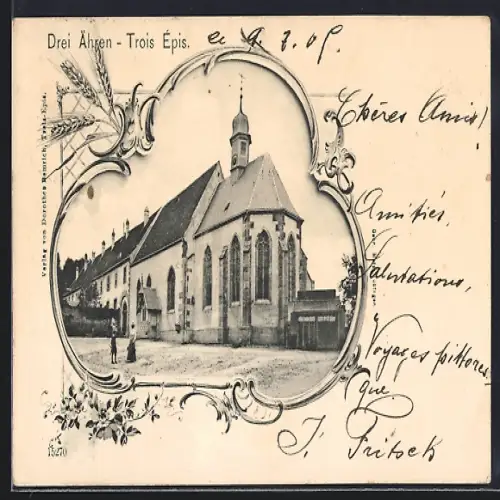 Drei Ähren - Trois Épis.
le 9.7.05.
Chères Amis!
Amitiés,
Salutations,
Voyages pittores-
que
J. Fritsch
Verlag von Dorothea Hemrich, Trois-Epis.
15270